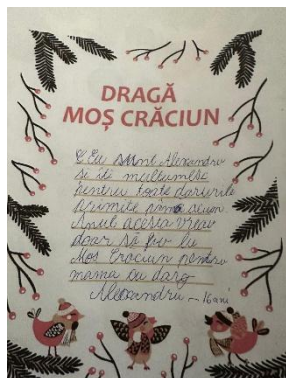 DRAGĂ
MOȘ CRĂCIUN
Eu sunt Alexandru
și îți mulțumesc
pentru toate darurile
primite până acum.
Anul acesta vreau
doar să fiu lu
Moș Crăciun pentru
mama cu drag
Alexandru - 16 ani